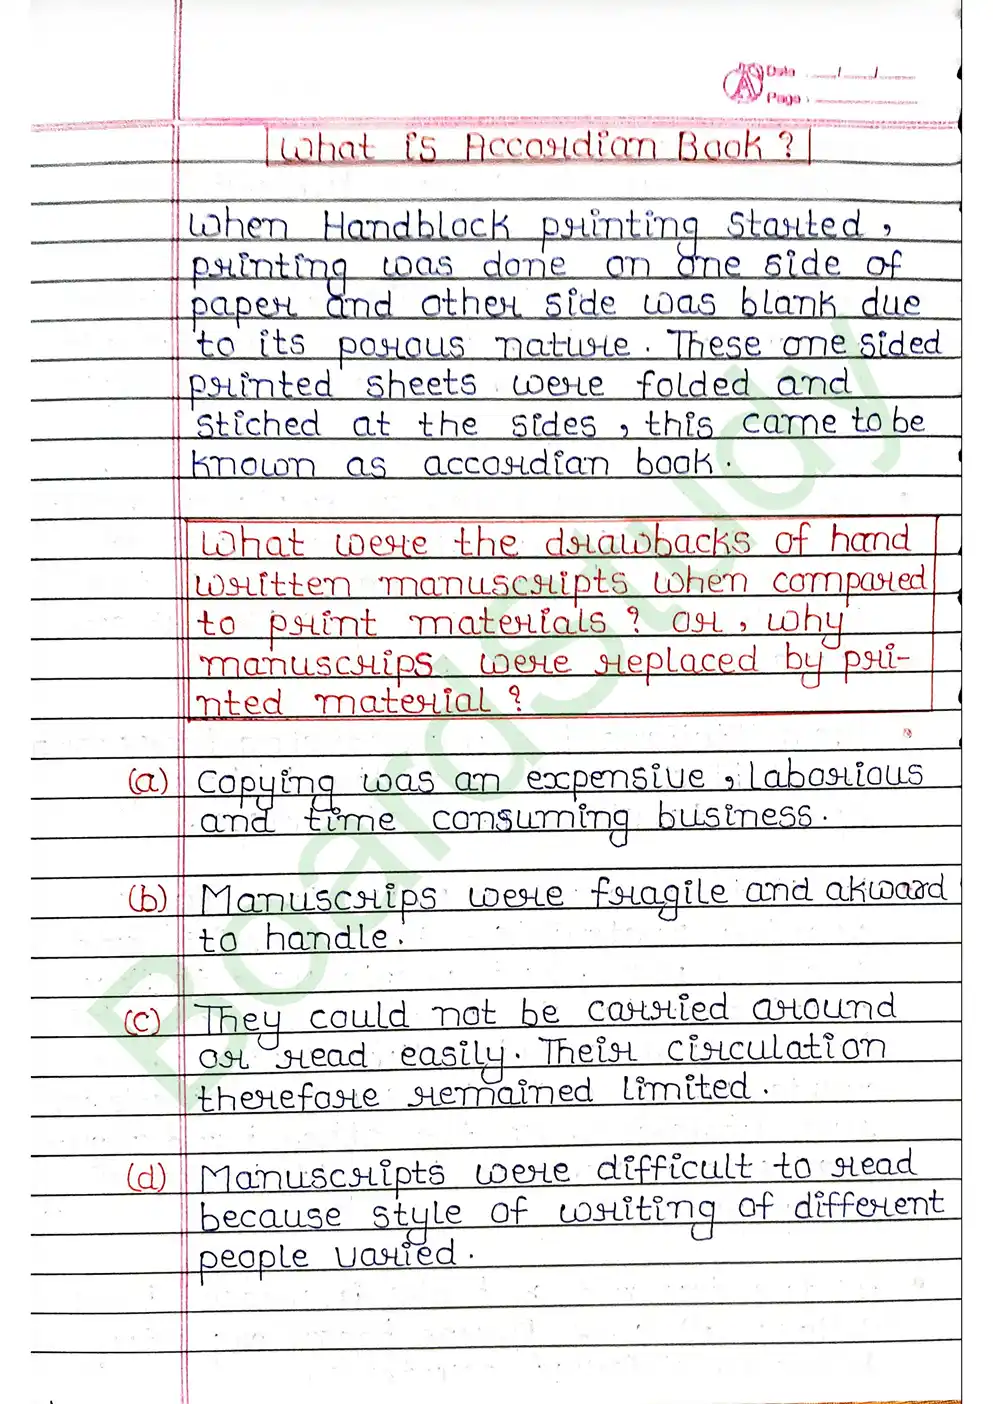 Date : ___/___/___
Page : ________
What is Accordian Book ?
When Handblock printing started ,
printing was done on one side of
paper and other side was blank due
to its porous nature. These one sided
printed sheets were folded and
stiched at the sides , this came to be
known as accordian book.
What were the drawbacks of hand
written manuscripts when compared
to print materials ? or , why
manuscrips were replaced by pri-
nted material ?
(a) Copying was an expensive , laborious
and time consuming business.
(b) Manuscrips were fragile and akward
to handle.
(c) They could not be carried around
or read easily. Their circulation
therefore remained limited.
(d) Manuscripts were difficult to read
because style of writing of different
people varied.
BoardStudy